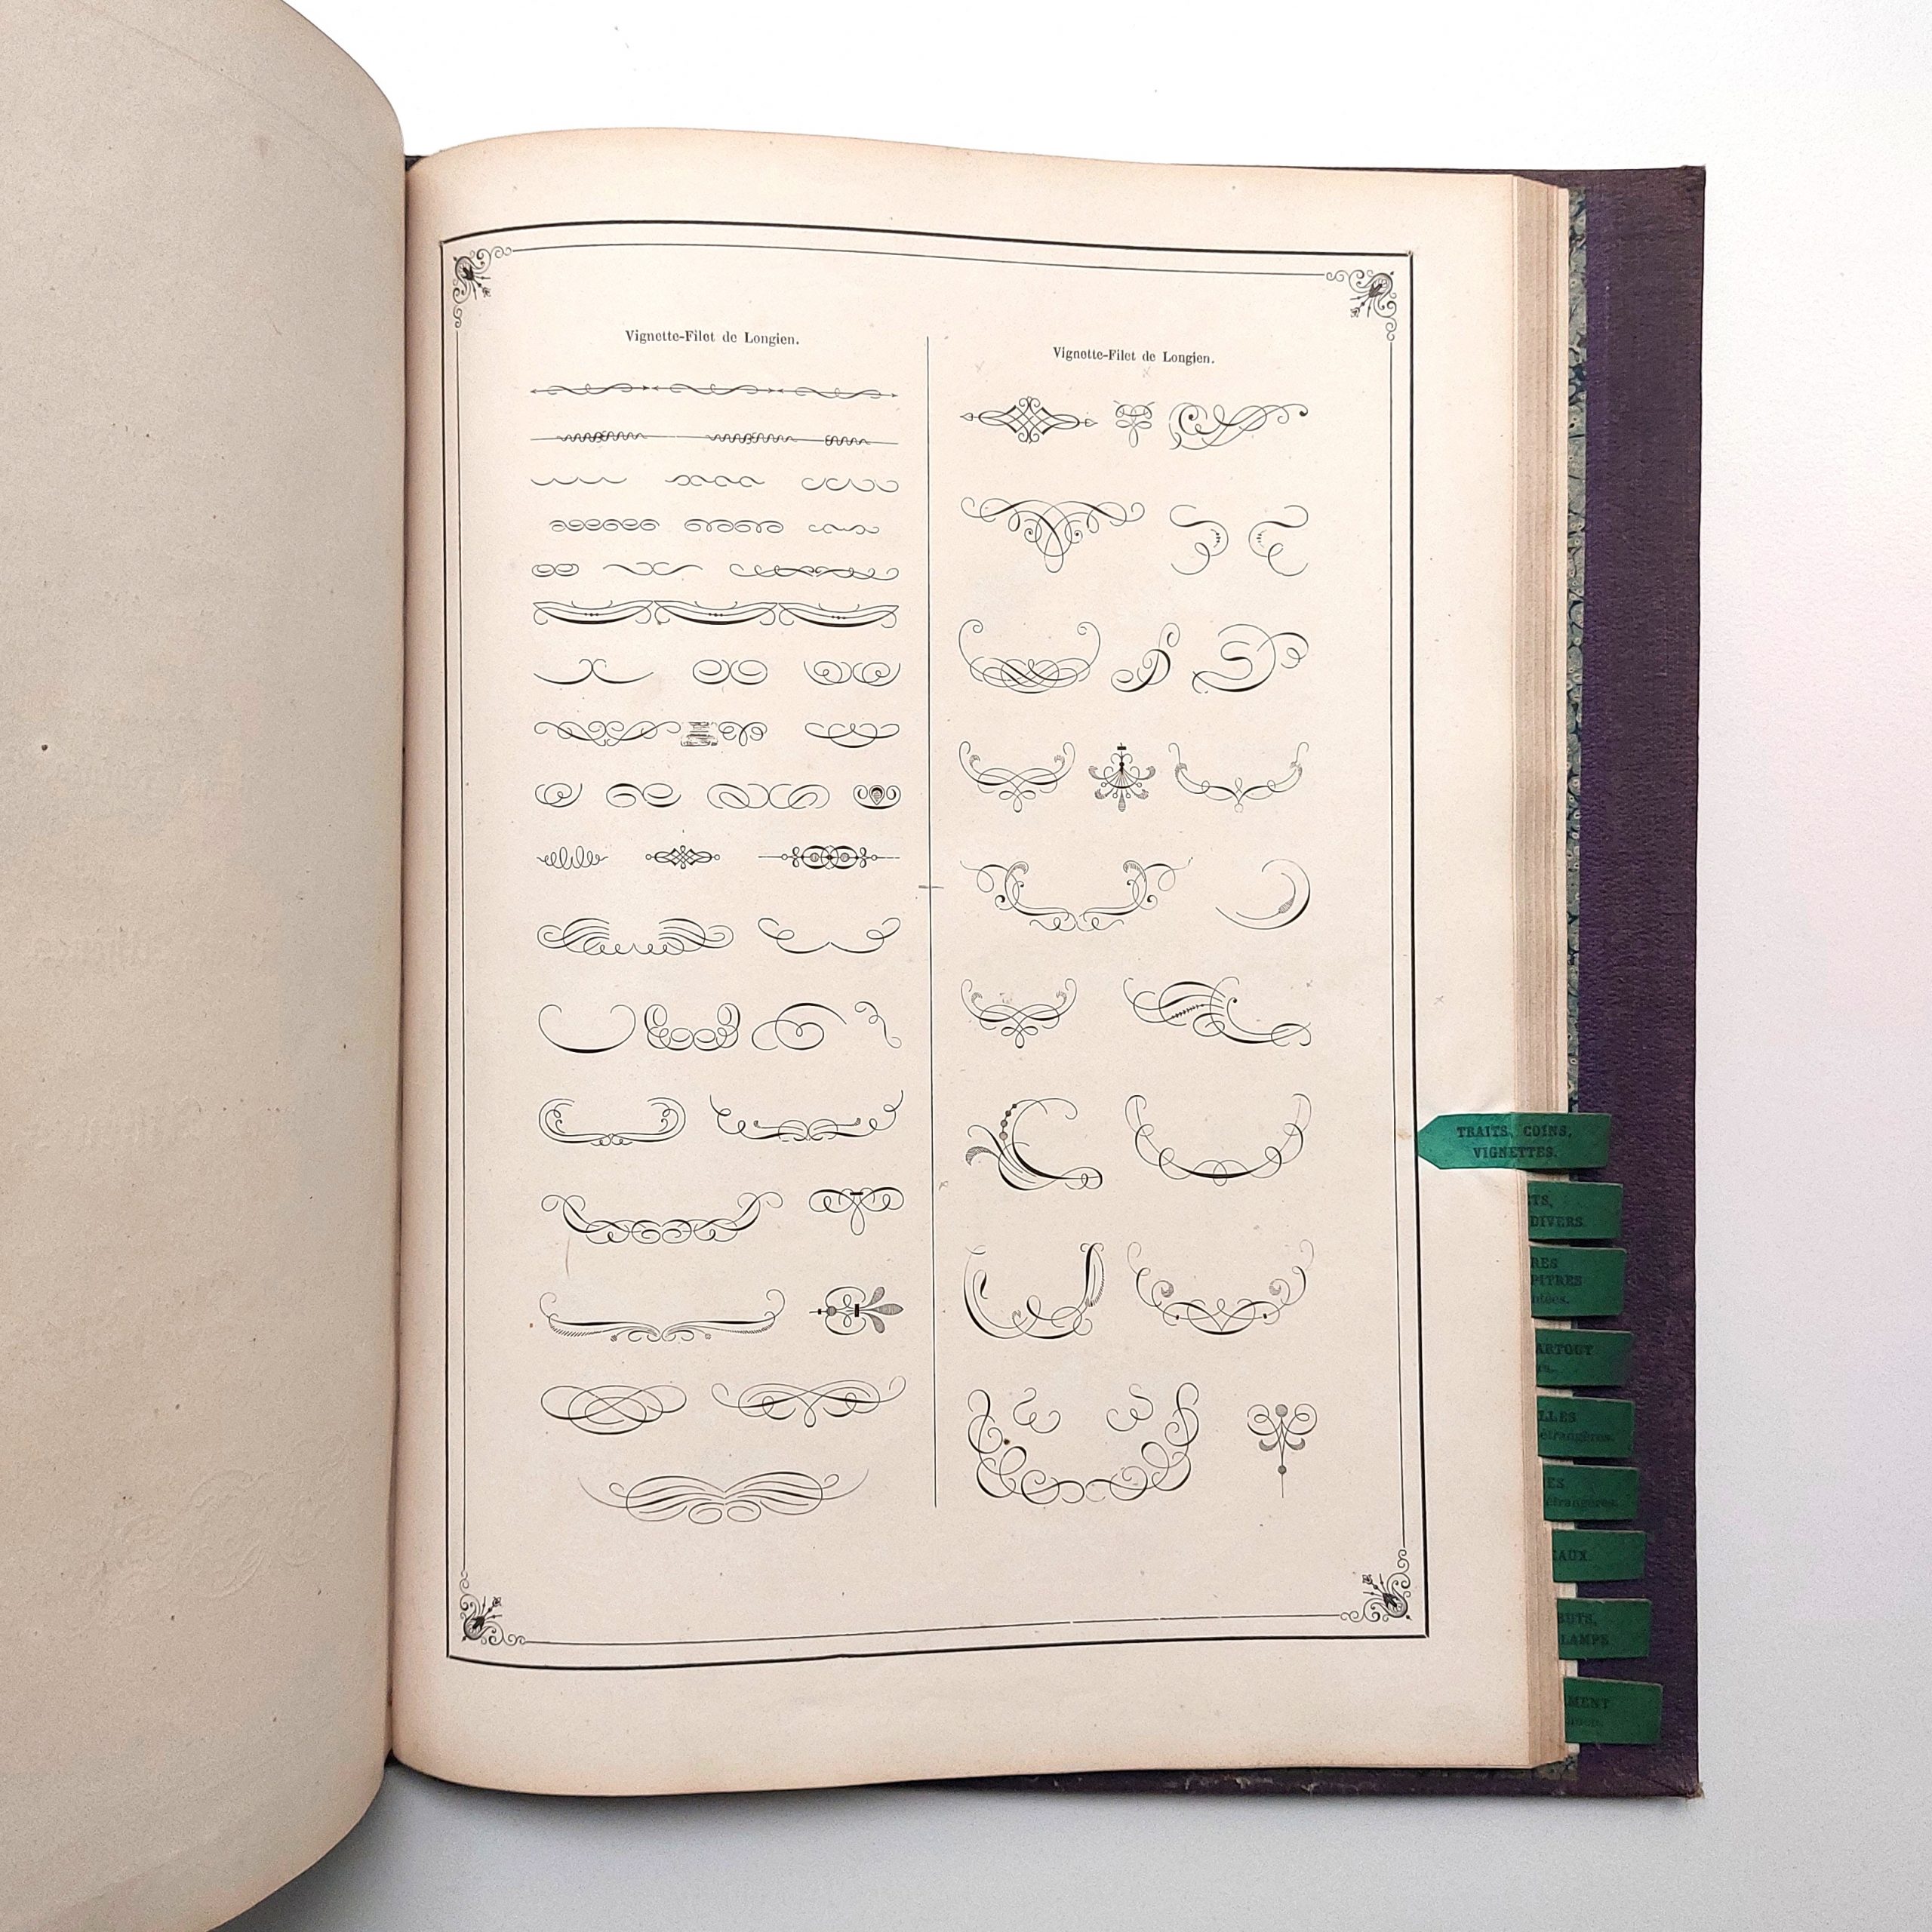 Vignette-Filet de Longien.
Vignette-Filet de Longien.
TRAITS, COINS,
VIGNETTES.
TS,
DIVERS.
RES
PITRES
ntées.
ARTOUT
LLES
étrangères.
ES
étrangères.
EAUX.
BUTS,
LAMPE
MENT